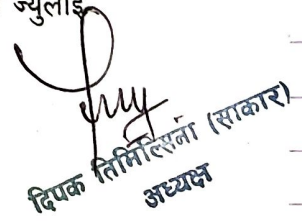 ज्युलाई
दिपक तिमिल्सिना (साकार)
अध्यक्ष